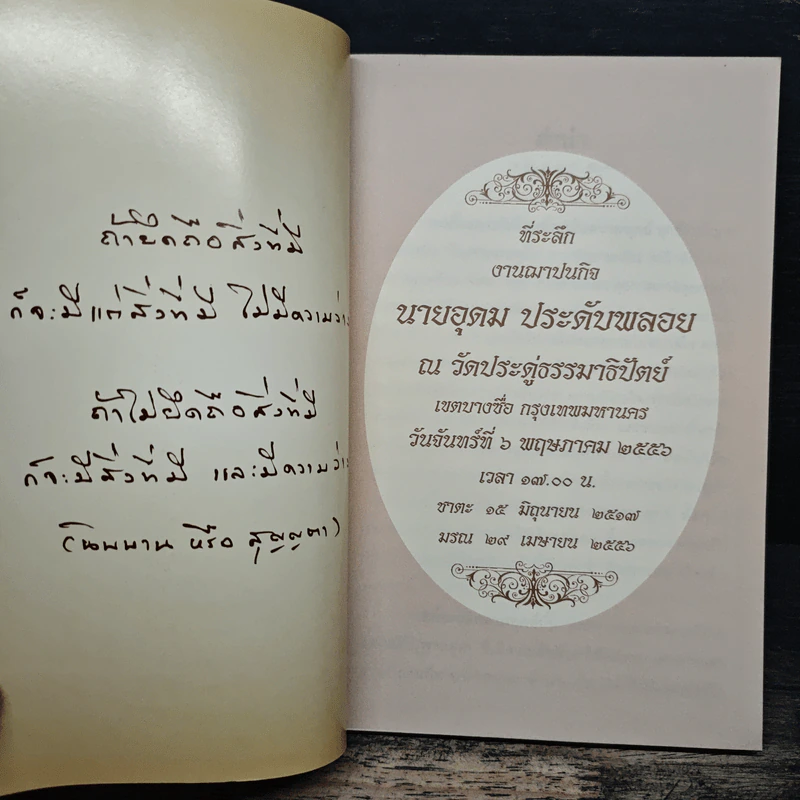 ถ้ายึดถือสิ่งที่มี
ก็จะมีแต่สิ่งที่มี ไม่มีความว่าง
ถ้าไม่ยึดถือสิ่งที่มี
ก็จะมีสิ่งที่มี และมีความว่าง
(นิพพาน หรือ สุญญตา)
ที่ระลึก
งานฌาปนกิจ
นายอุดม ประดับพลอย
ณ วัดประดู่ธรรมาธิปัตย์
เขตบางซื่อ กรุงเทพมหานคร
วันจันทร์ที่ ๖ พฤษภาคม ๒๕๕๖
เวลา ๑๗.๐๐ น.
ชาตะ ๑๕ มิถุนายน ๒๕๑๗
มรณ ๒๙ เมษายน ๒๕๕๖